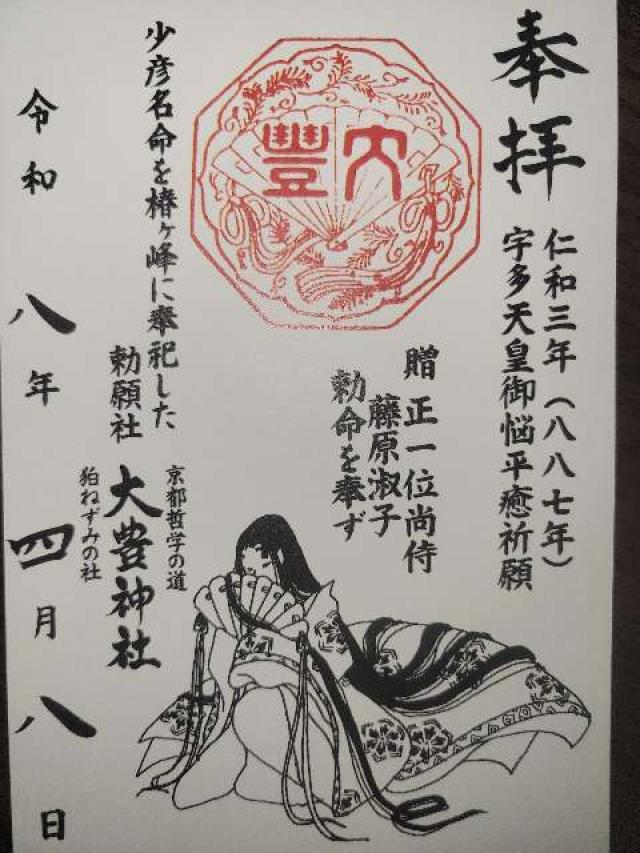 奉拝
仁和三年（八八七年）
宇多天皇御悩平癒祈願
贈 正一位尚侍
藤原淑子
勅命を奉ず
大豐
少彦名命を椿ヶ峰に奉祀した
勅願社
京都哲学の道
大豊神社
狛ねずみの社
令和八年四月八日